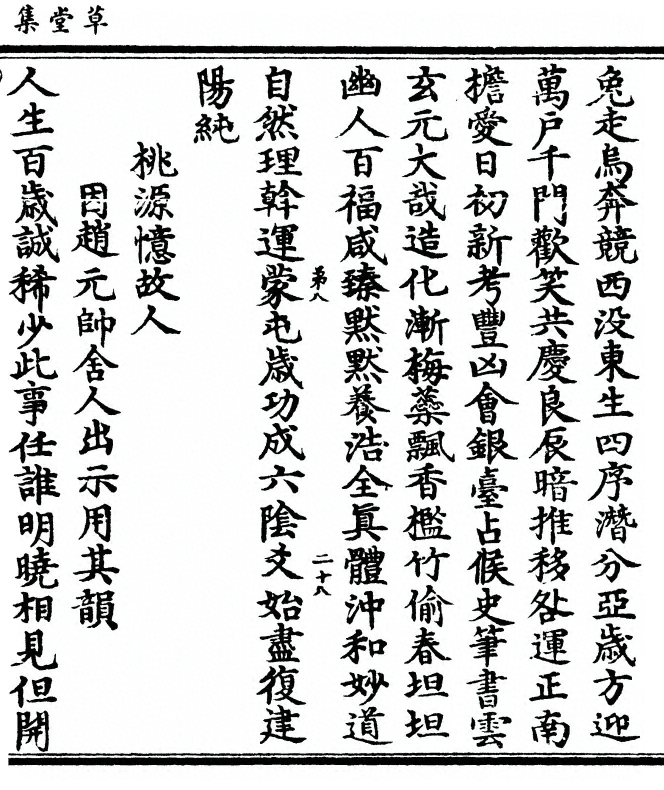 草堂集
兔走烏奔競西没東生四序潛分亞歲方迎
萬户千門歡笑共慶良辰暗推移咎運正南
檐愛日初新考豐凶會銀臺占候史筆書雲
玄元大哉造化漸梅蘂飄香檻竹偷春坦坦
幽人百福咸臻默默養浩全眞體沖和妙道
第八
二十八
自然理幹運蒙屯歲功成六陰爻始盡復建
陽純
桃源憶故人
因趙元帥舍人出示用其韻
人生百歲誠稀少此事任誰明曉相見但開